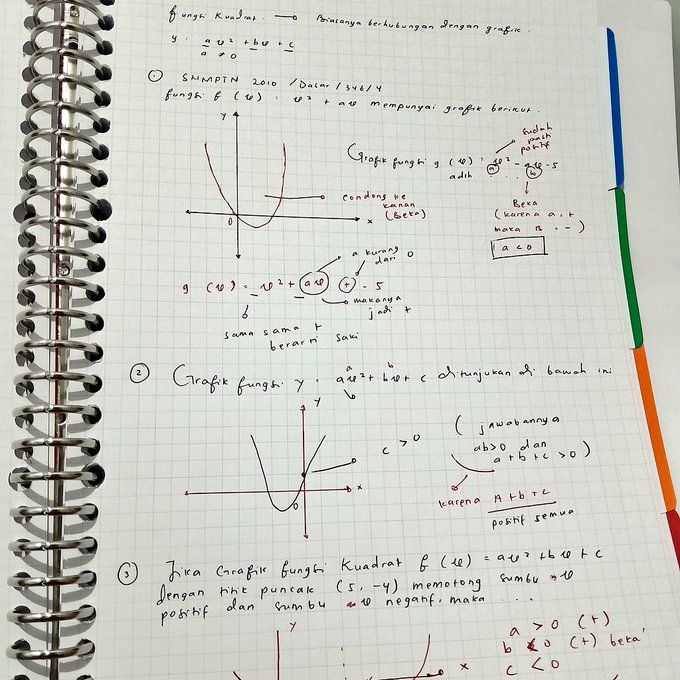 Fungsi Kuadrat → Biasanya berhubungan dengan grafik.
y = ax² + bx + c
a ≠ 0
① SNMPTN 2010 /Dasar/346/4
Fungsi f (x) = x² + ax mempunyai grafik berikut.
y
0
x
condong ke
kanan
(Beka)
Sudah
pasti
positif
Grafik fungsi g (x) = x² - ax - 5
adlh ...
a
b
Beka
(karena a . +
maka B . - )
a < 0
a kurang
dari 0
g (x) = x² + ax + - 5
makanya
jadi +
sama sama +
berarti
② Grafik fungsi y = ax² + bx + c ditunjukan di bawah ini
a
b
b
y
x
0
c > 0
( jawabannya
ab>0 dan
a + b + c > 0 )
karena A + b + c
positif semua
③ Jika Grafik fungsi Kuadrat f (x) = ax² + bx + c
dengan titik puncak (5, -4) memotong sumbu x
positif dan sumbu x negatif, maka ...
y
x
a > 0 (+)
b < 0 (+) beka'
c < 0